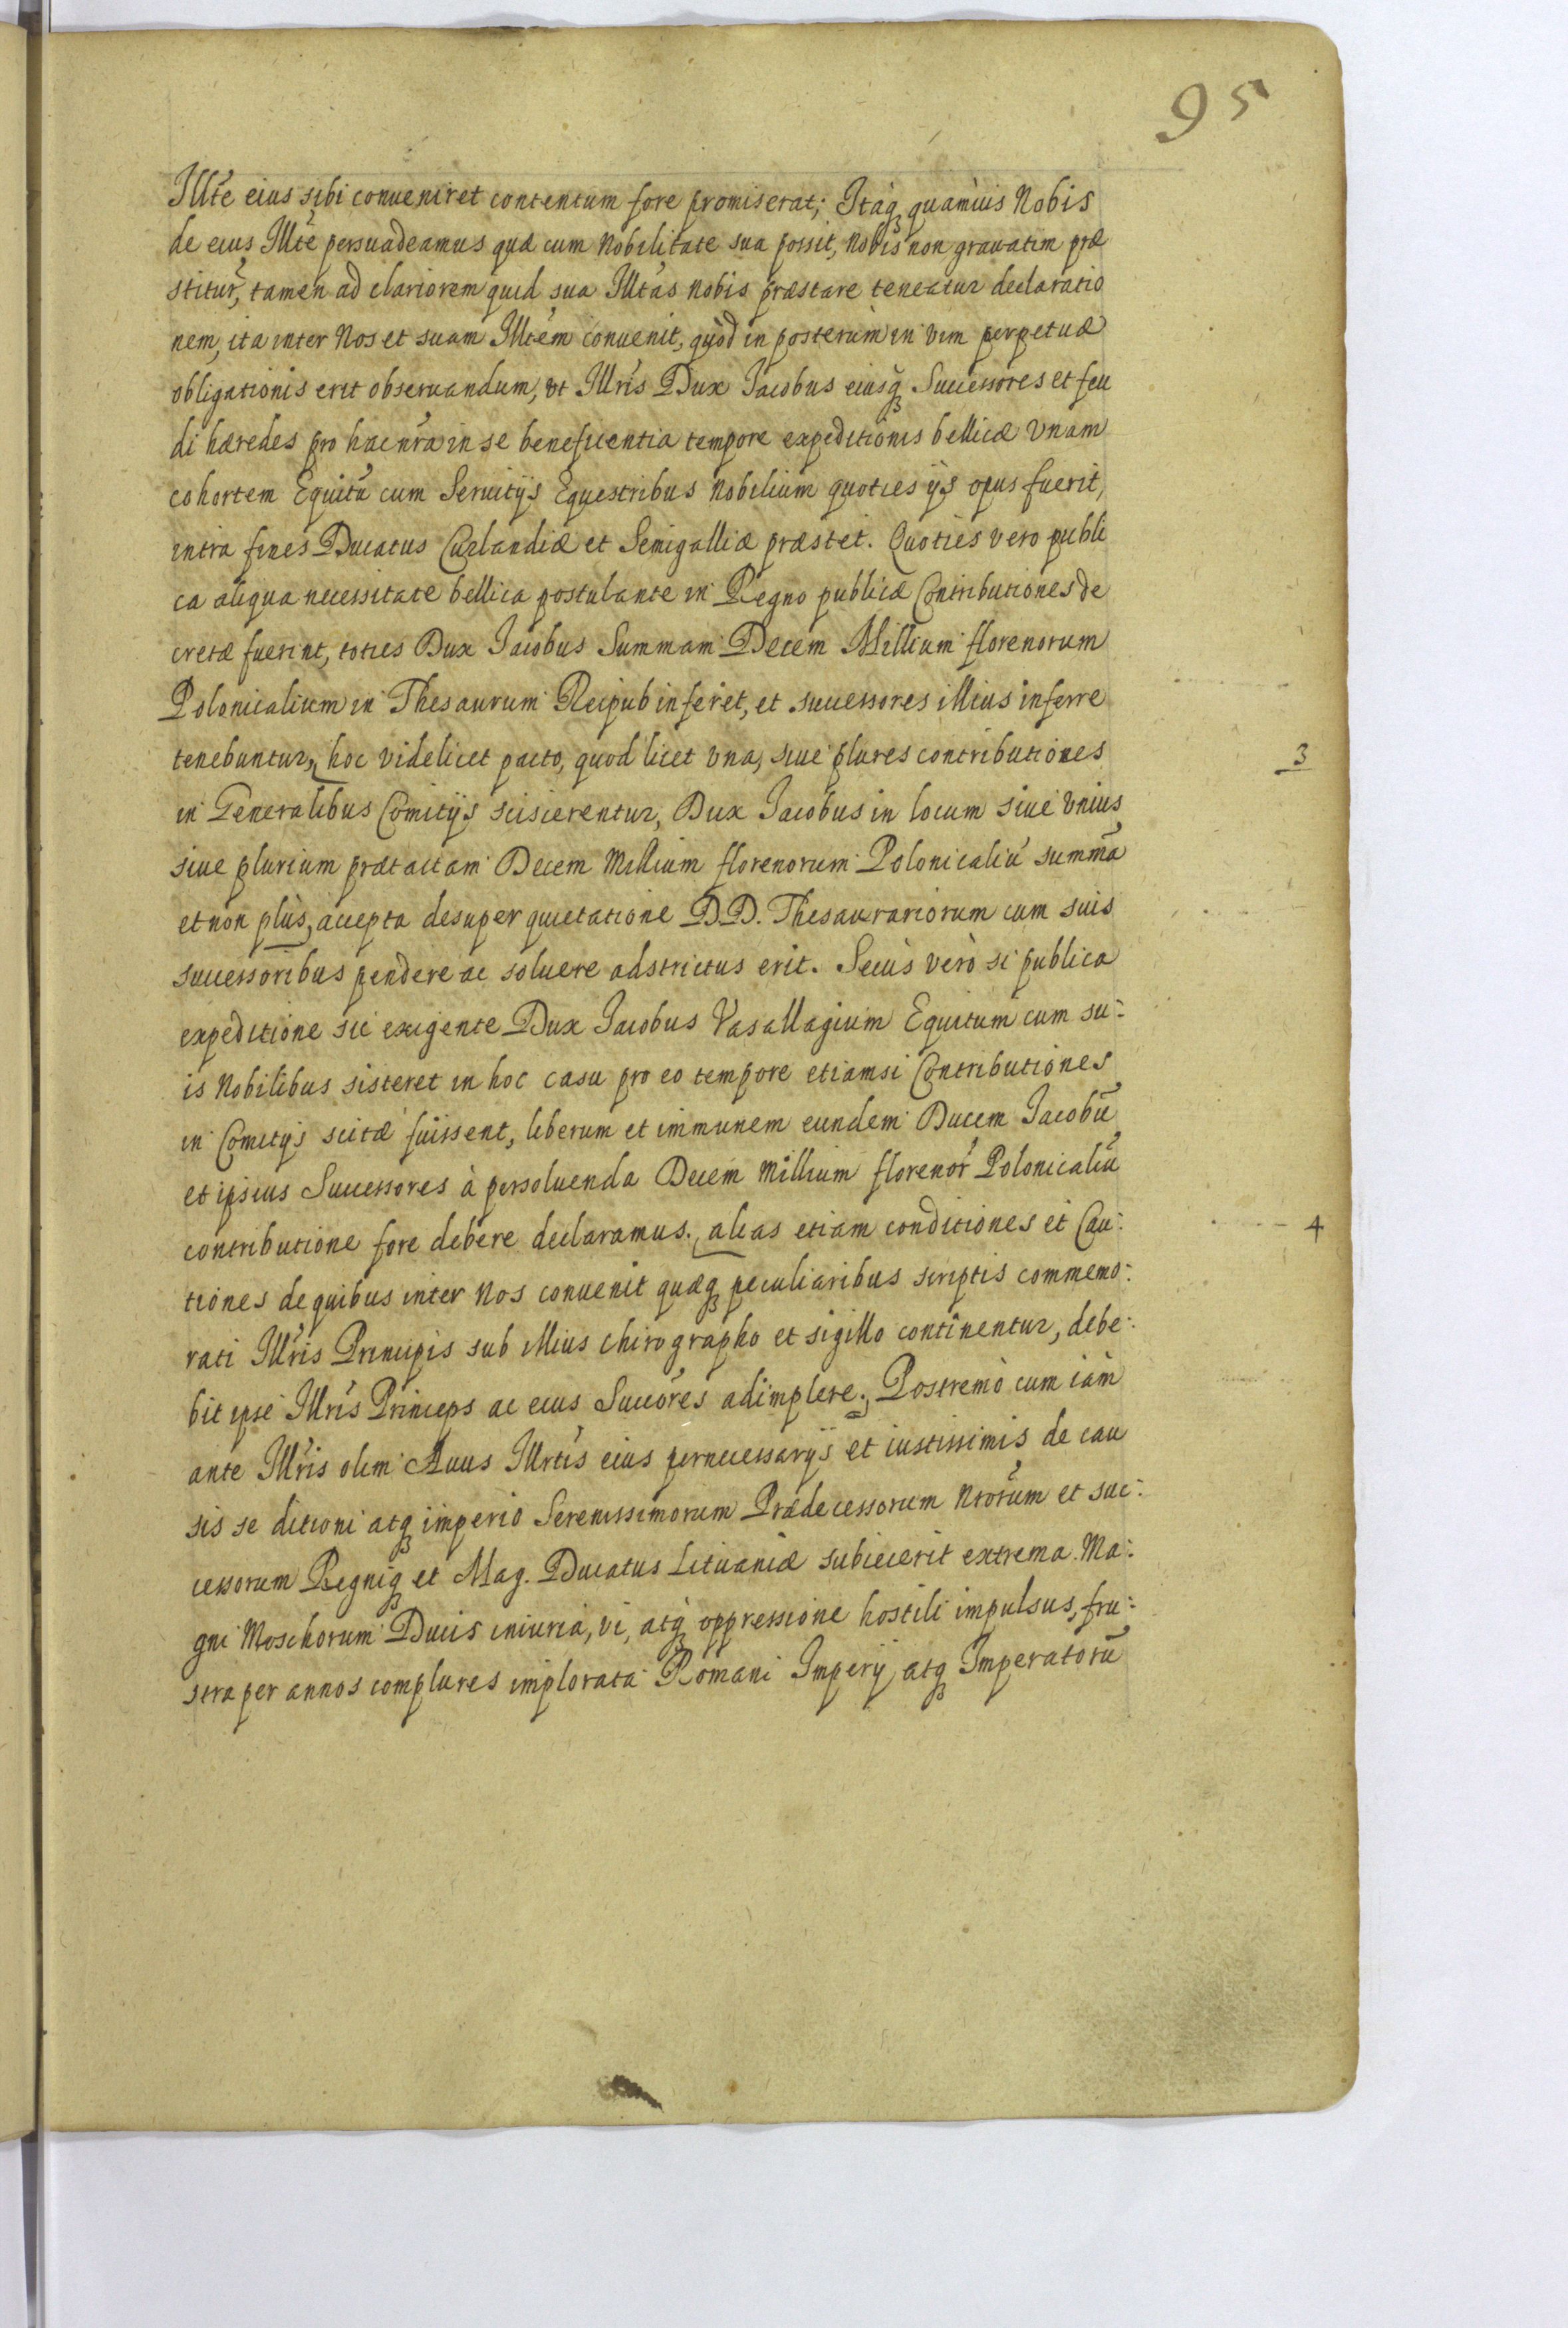 95
Illte eius sibi conueniret contentum fore promiserat; Itaq quamuis Nobis
de eius Illte persuadeamus quæ cum Nobilitate sua possit, Nobis non grauatim præ
stitur, tamen ad clariorem quid sua Illtas Nobis præstare teneatur declaratio
nem, ita inter Nos et suam Illtem conuenit, quòd in posterum in vim perpetuæ
obligationis erit obseruandum, vt Illris Dux Iacobus eiusq Successores et feu
di hæredes pro hac nra in se beneficentia tempore expeditionis bellicæ Vnam
cohortem Equitū cum Seruitijs Equestribus Nobilium quoties ijs opus fuerit,
intra fines Ducatus Curlandiæ et Semigalliæ præstet. Quoties vero publi
ca aliqua necessitate bellica postulante in Regno publicæ Contributiones de
cretæ fuerint, toties Dux Iacobus Summam Decem Millium florenorum
Polonicalium in Thesaurum Reipub inferet, et successores illius inferre
tenebuntur, hoc videlicet pacto, quod licet vna, siue plures contributiones
3
in Generalibus Comitijs sciscerentur, Dux Iacobus in locum siue vnius
siue plurium prætactam Decem Millium florenorum Polonicaliū summā
et non plùs, accepta desuper quietatione D.D. Thesaurariorum cum suis
successoribus pendere ac soluere adstrictus erit. Secùs verò si publica
expeditione sic exigente Dux Iacobus Vasallagium Equitum cum su:
is Nobilibus sisteret in hoc casu pro eo tempore etiamsi Contributiones
in Comitijs scitæ fuissent, liberum et immunem eundem Ducem Iacobū
et ipsius Successores à persoluenda Decem Millium florenor Polonicaliū
contributione fore debere declaramus. alias etiam conditiones et Cau:
4
tiones de quibus inter Nos conuenit quæq peculiaribus scriptis commemo:
rati Illris Principis sub illius chirographo et sigillo continentur, debe:
bit ipse Illris Princeps ac eius Succores adimplere. Postremò cum iàm
ante Illris olim Auus Illrtis eius pernecessarijs et iustissimis de cau
sis se ditioni atq imperio Serenissimorum Prædecessorum Nrorum et suc:
cessorum Regniq et Mag. Ducatus Lituaniæ subiecerit extrema Ma:
gni Moschorum Ducis iniuria, vi, atq oppressione hostili impulsus, fru:
stra per annos complures implorata Romani Imperij atq Imperatorū